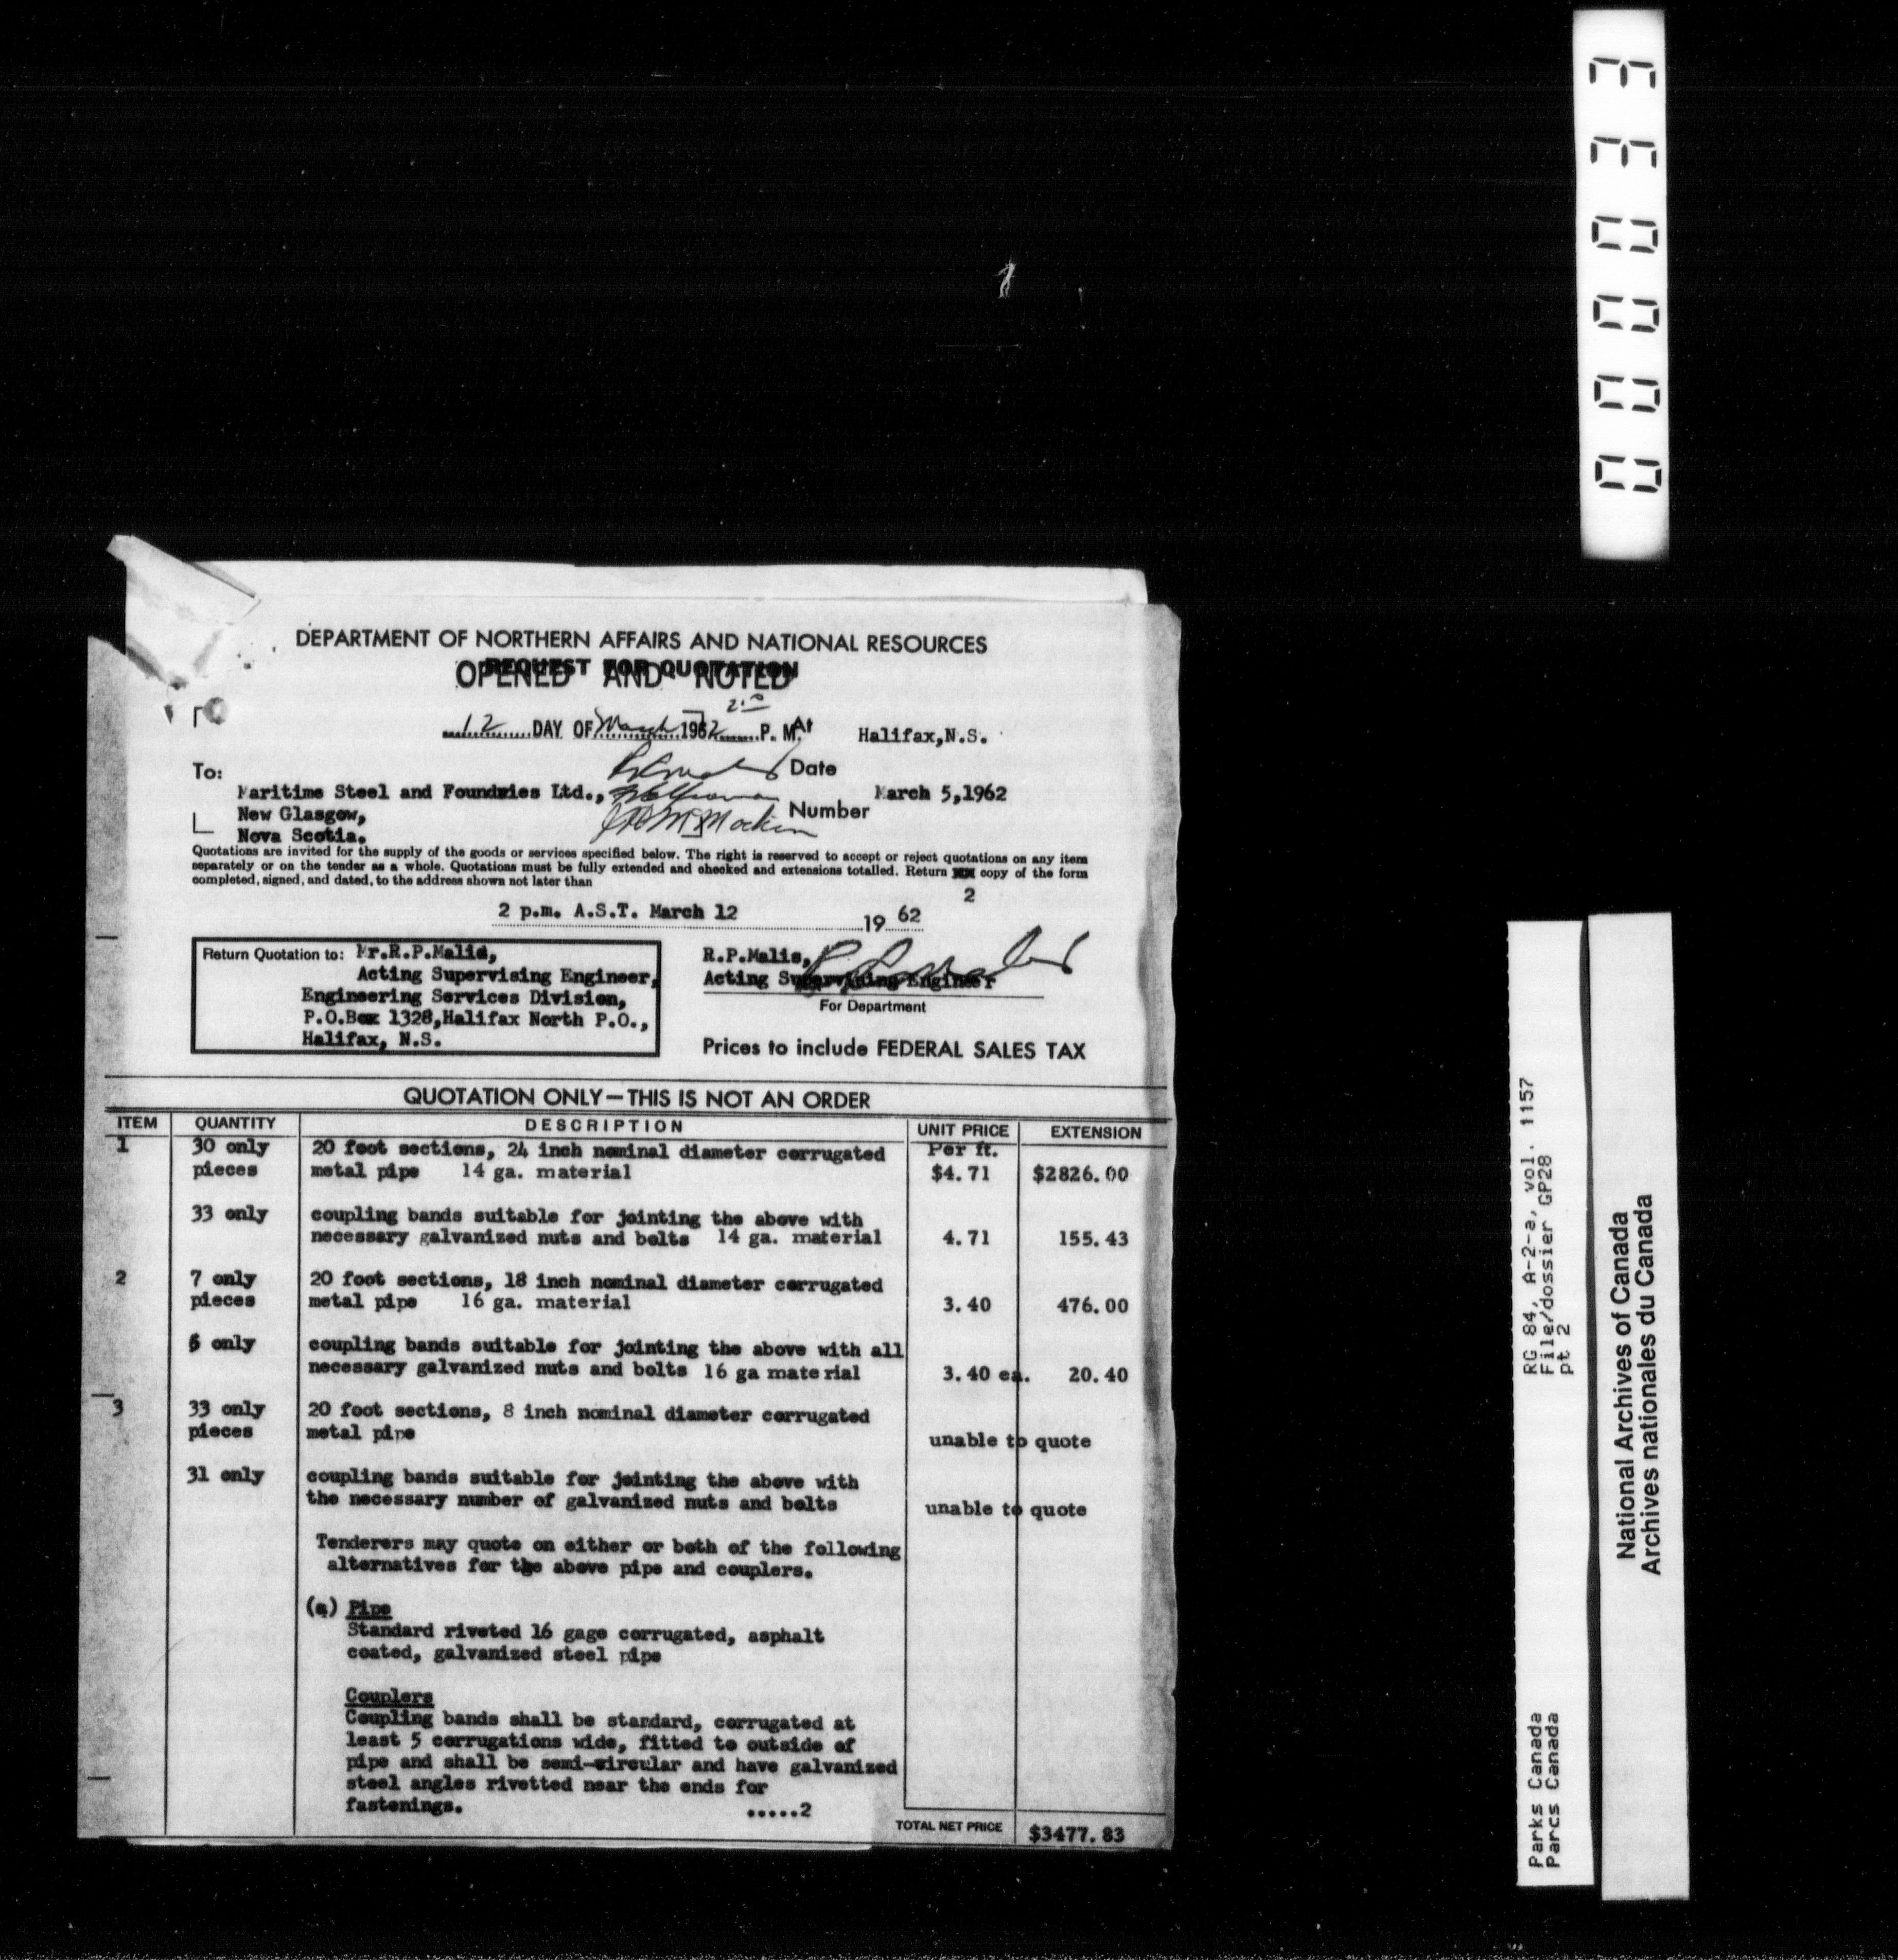 DEPARTMENT OF NORTHERN AFFAIRS AND NATIONAL RESOURCES
REQUEST FOR QUOTATION
OPENED AND NOTED
2:00
12 DAY OF March 1962 P. M. At Halifax,N.S.
To: Date
Maritime Steel and Foundries Ltd., March 5,1962
New Glasgow, Number
Nova Scotia.
Quotations are invited for the supply of the goods or services specified below. The right is reserved to accept or reject quotations on any item
separately or on the tender as a whole. Quotations must be fully extended and checked and extensions totalled. Return copy of the form
completed, signed, and dated, to the address shown not later than
2
2 p.m. A.S.T. March 12 1962
Return Quotation to: Mr.R.P.Malis,
Acting Supervising Engineer,
Engineering Services Division,
P.O.Box 1328,Halifax North P.O.,
Halifax, N.S.
R.P.Malis,
Acting Supervising Engineer
For Department
Prices to include FEDERAL SALES TAX
QUOTATION ONLY—THIS IS NOT AN ORDER
ITEM QUANTITY DESCRIPTION UNIT PRICE EXTENSION
1 30 only 20 foot sections, 24 inch nominal diameter corrugated Per ft.
pieces metal pipe 14 ga. material $4.71 $2826.00
33 only coupling bands suitable for jointing the above with
necessary galvanized nuts and bolts 14 ga. material 4.71 155.43
2 7 only 20 foot sections, 18 inch nominal diameter corrugated
pieces metal pipe 16 ga. material 3.40 476.00
6 only coupling bands suitable for jointing the above with all
necessary galvanized nuts and bolts 16 ga material 3.40 ea. 20.40
3 33 only 20 foot sections, 8 inch nominal diameter corrugated
pieces metal pipe unable to quote
31 only coupling bands suitable for jointing the above with
the necessary number of galvanized nuts and bolts unable to quote
Tenderers may quote on either or both of the following
alternatives for the above pipe and couplers.
(a) Pipe
Standard riveted 16 gage corrugated, asphalt
coated, galvanized steel pipe
Couplers
Coupling bands shall be standard, corrugated at
least 5 corrugations wide, fitted to outside of
pipe and shall be semi-circular and have galvanized
steel angles rivetted near the ends for
fastenings. .....2
TOTAL NET PRICE $3477.83
000033
RG 84, A-2-a, vol. 1157
File/dossier GP28
pt 2
Parks Canada
Parcs Canada
National Archives of Canada
Archives nationales du Canada